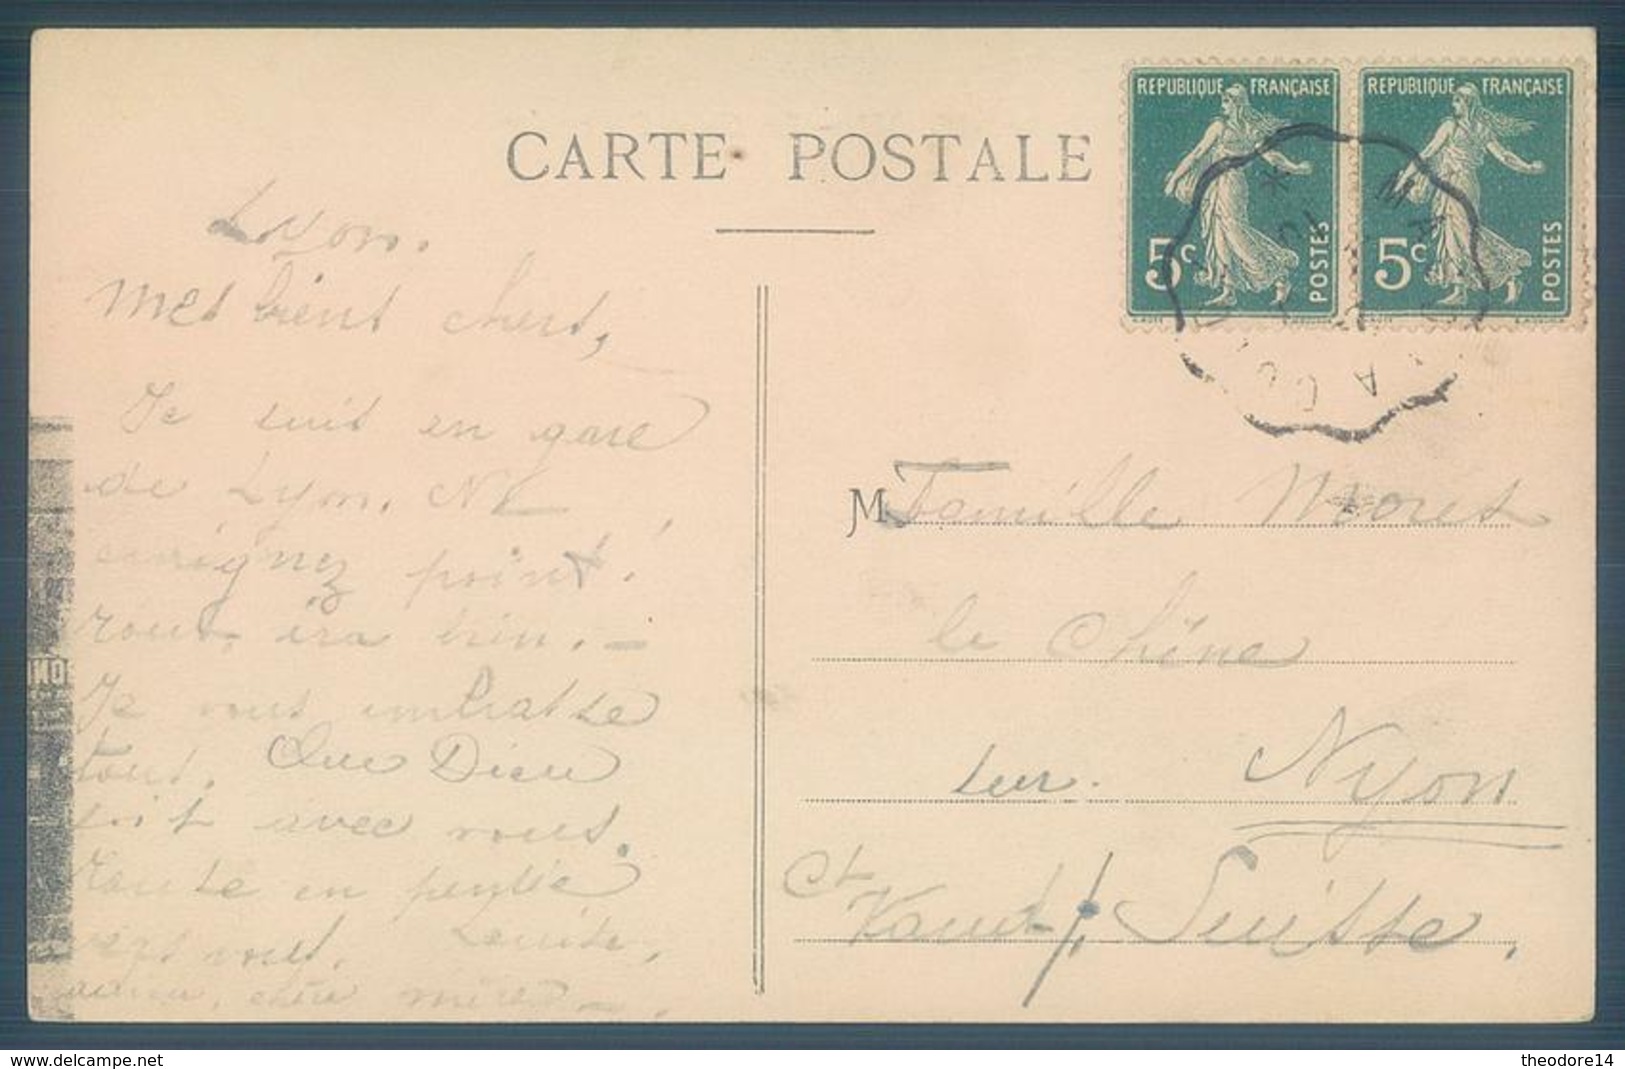 CARTE POSTALE
REPUBLIQUE FRANÇAISE
5c
POSTES
REPUBLIQUE FRANÇAISE
5c
POSTES
Lyon.
Mes biens chers,
Je suis en gare
de Lyon. Ne
craignez point!
tout ira bien. —
Je vous embrasse
tous. Que Dieu
soit avec vous.
Toute en pensée
vers vous. Louise,
M Famille Moret
le Chêne
sur. Nyon
Ct Vaud / Suisse.
delcampe.net
theodore14